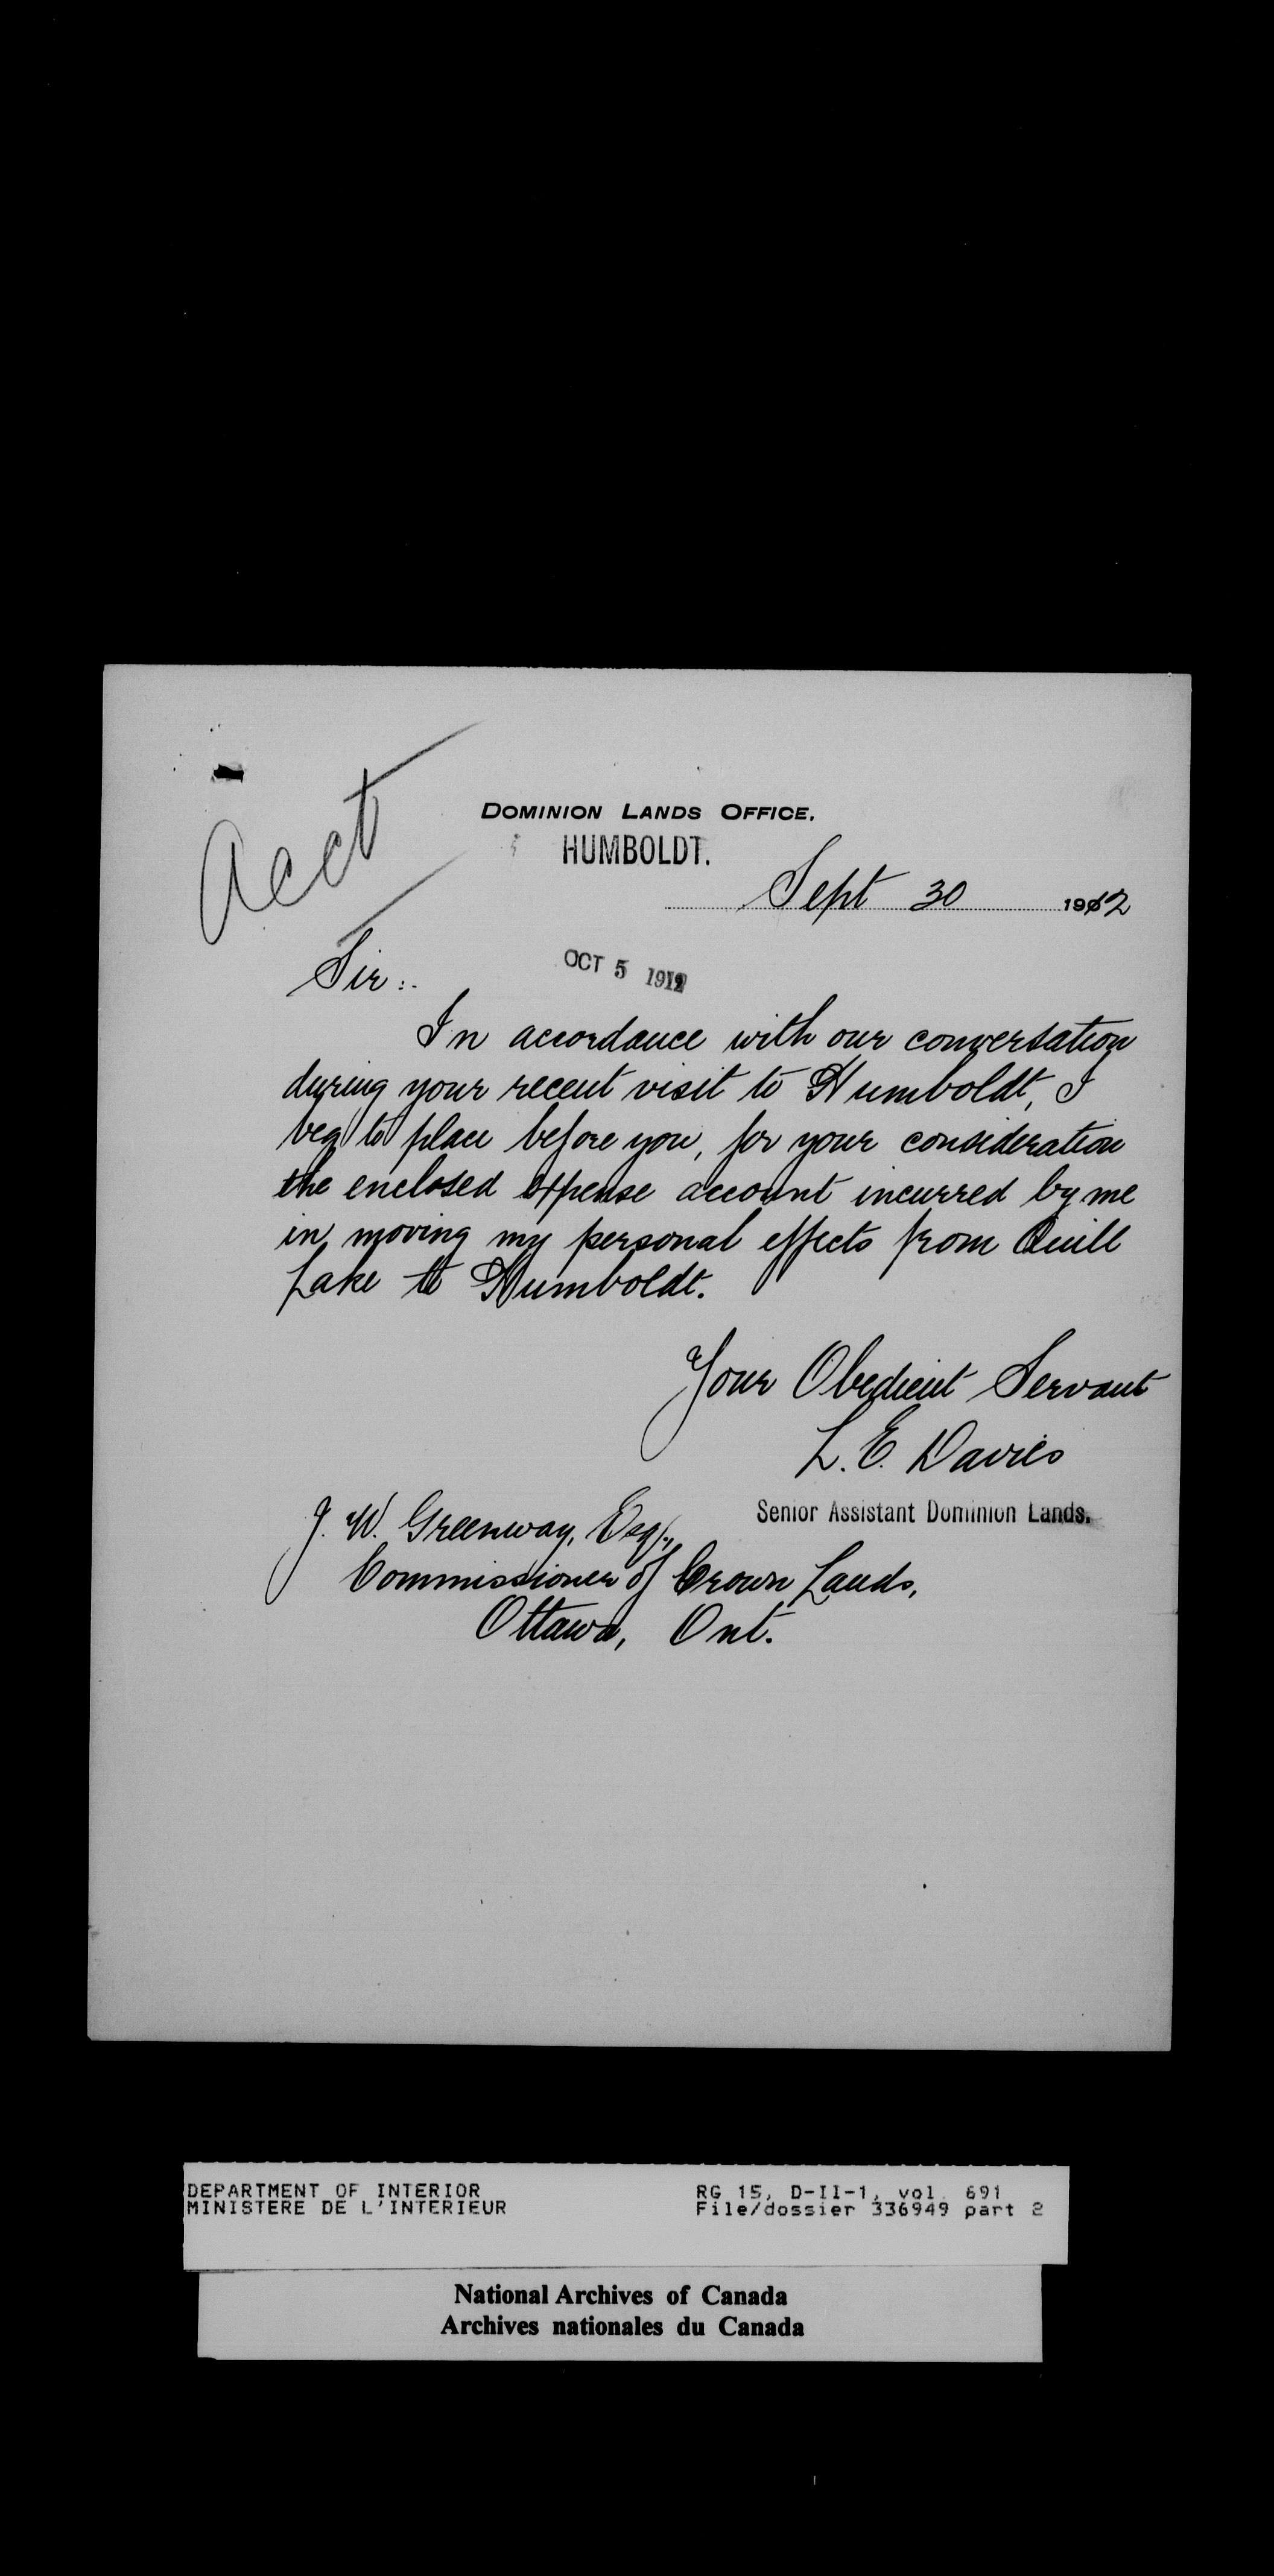 Acct
DOMINION LANDS OFFICE.
HUMBOLDT.
Sept 30 1912
OCT 5 1912
Sir:-
In accordance with our conversation
during your recent visit to Humboldt, I
beg to place before you, for your consideration
the enclosed expense account incurred by me
in moving my personal effects from Quill
Lake to Humboldt.
Your Obedient Servant
L. E. Davies
Senior Assistant Dominion Lands.
J. W. Greenway, Esq.,
Commissioner of Crown Lands,
Ottawa, Ont.
DEPARTMENT OF INTERIOR
MINISTERE DE L'INTERIEUR
RG 15, D-II-1, vol. 691
File/dossier 336949 part 2
National Archives of Canada
Archives nationales du Canada